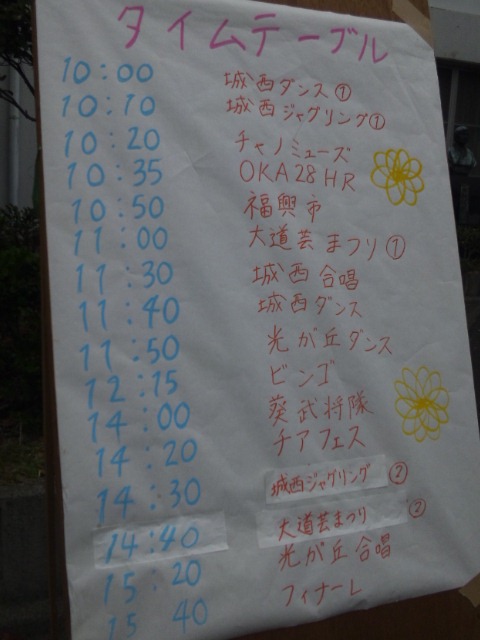 タイムテーブル
10:00 城西ダンス①
10:10 城西ジャグリング①
10:20 チャノミューズ
10:35 OKA28HR
10:50 福興市
11:00 大道芸まつり①
11:30 城西合唱
11:40 城西ダンス
11:50 光が丘ダンス
12:15 ビンゴ
14:00 葵武将隊
14:20 チアフェス
14:30 城西ジャグリング②
14:40 大道芸まつり②
15:20 光が丘合唱
15 40 フィナーレ